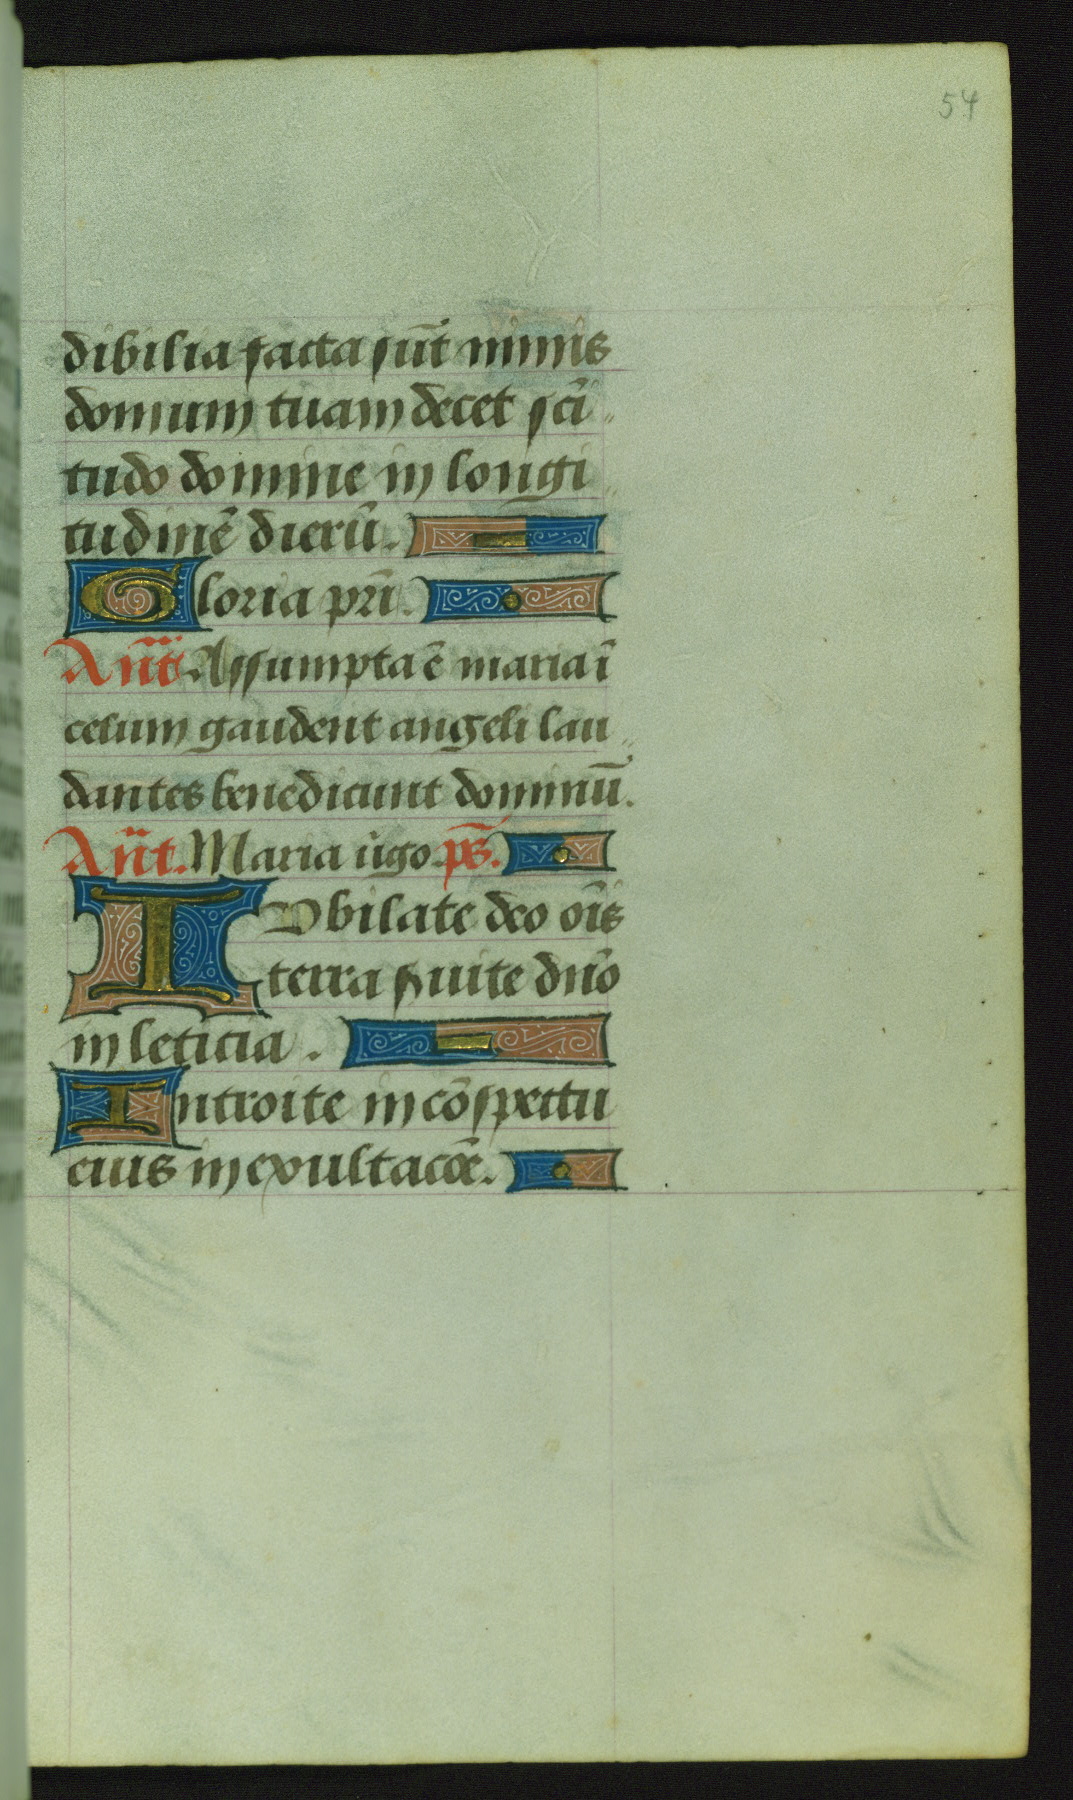 54
dibilia facta sūt nimis
domum tuam decet sc̄i
tudo domine in longi
tudinē dierū.
Gloria pr̄i.
An̄t. Assumpta ē maria ī
celum gaudent angeli lau
dantes benedicunt dominū.
An̄t. Maria v̄go. ps̄.
Iubilate deo om̄is
terra s̄uite dn̄o
in leticia.
Introite in cōspectu
eius in exultacōe.